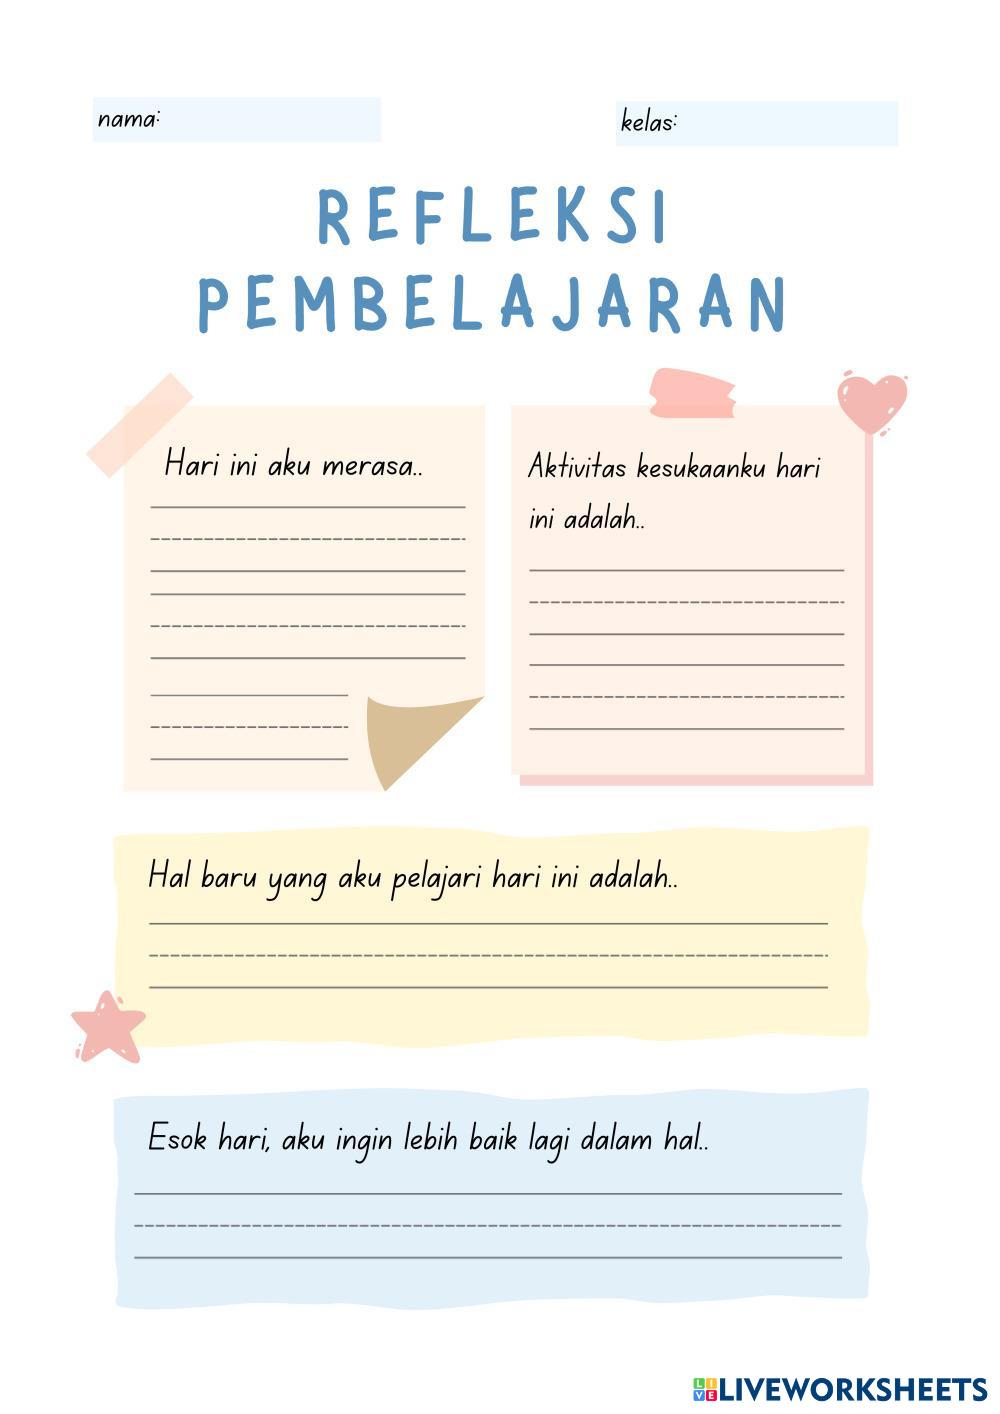 nama:
kelas:
REFLEKSI
PEMBELAJARAN
Hari ini aku merasa..
Aktivitas kesukaanku hari
ini adalah..
Hal baru yang aku pelajari hari ini adalah..
Esok hari, aku ingin lebih baik lagi dalam hal..
LIVE LIVEWORKSHEETS